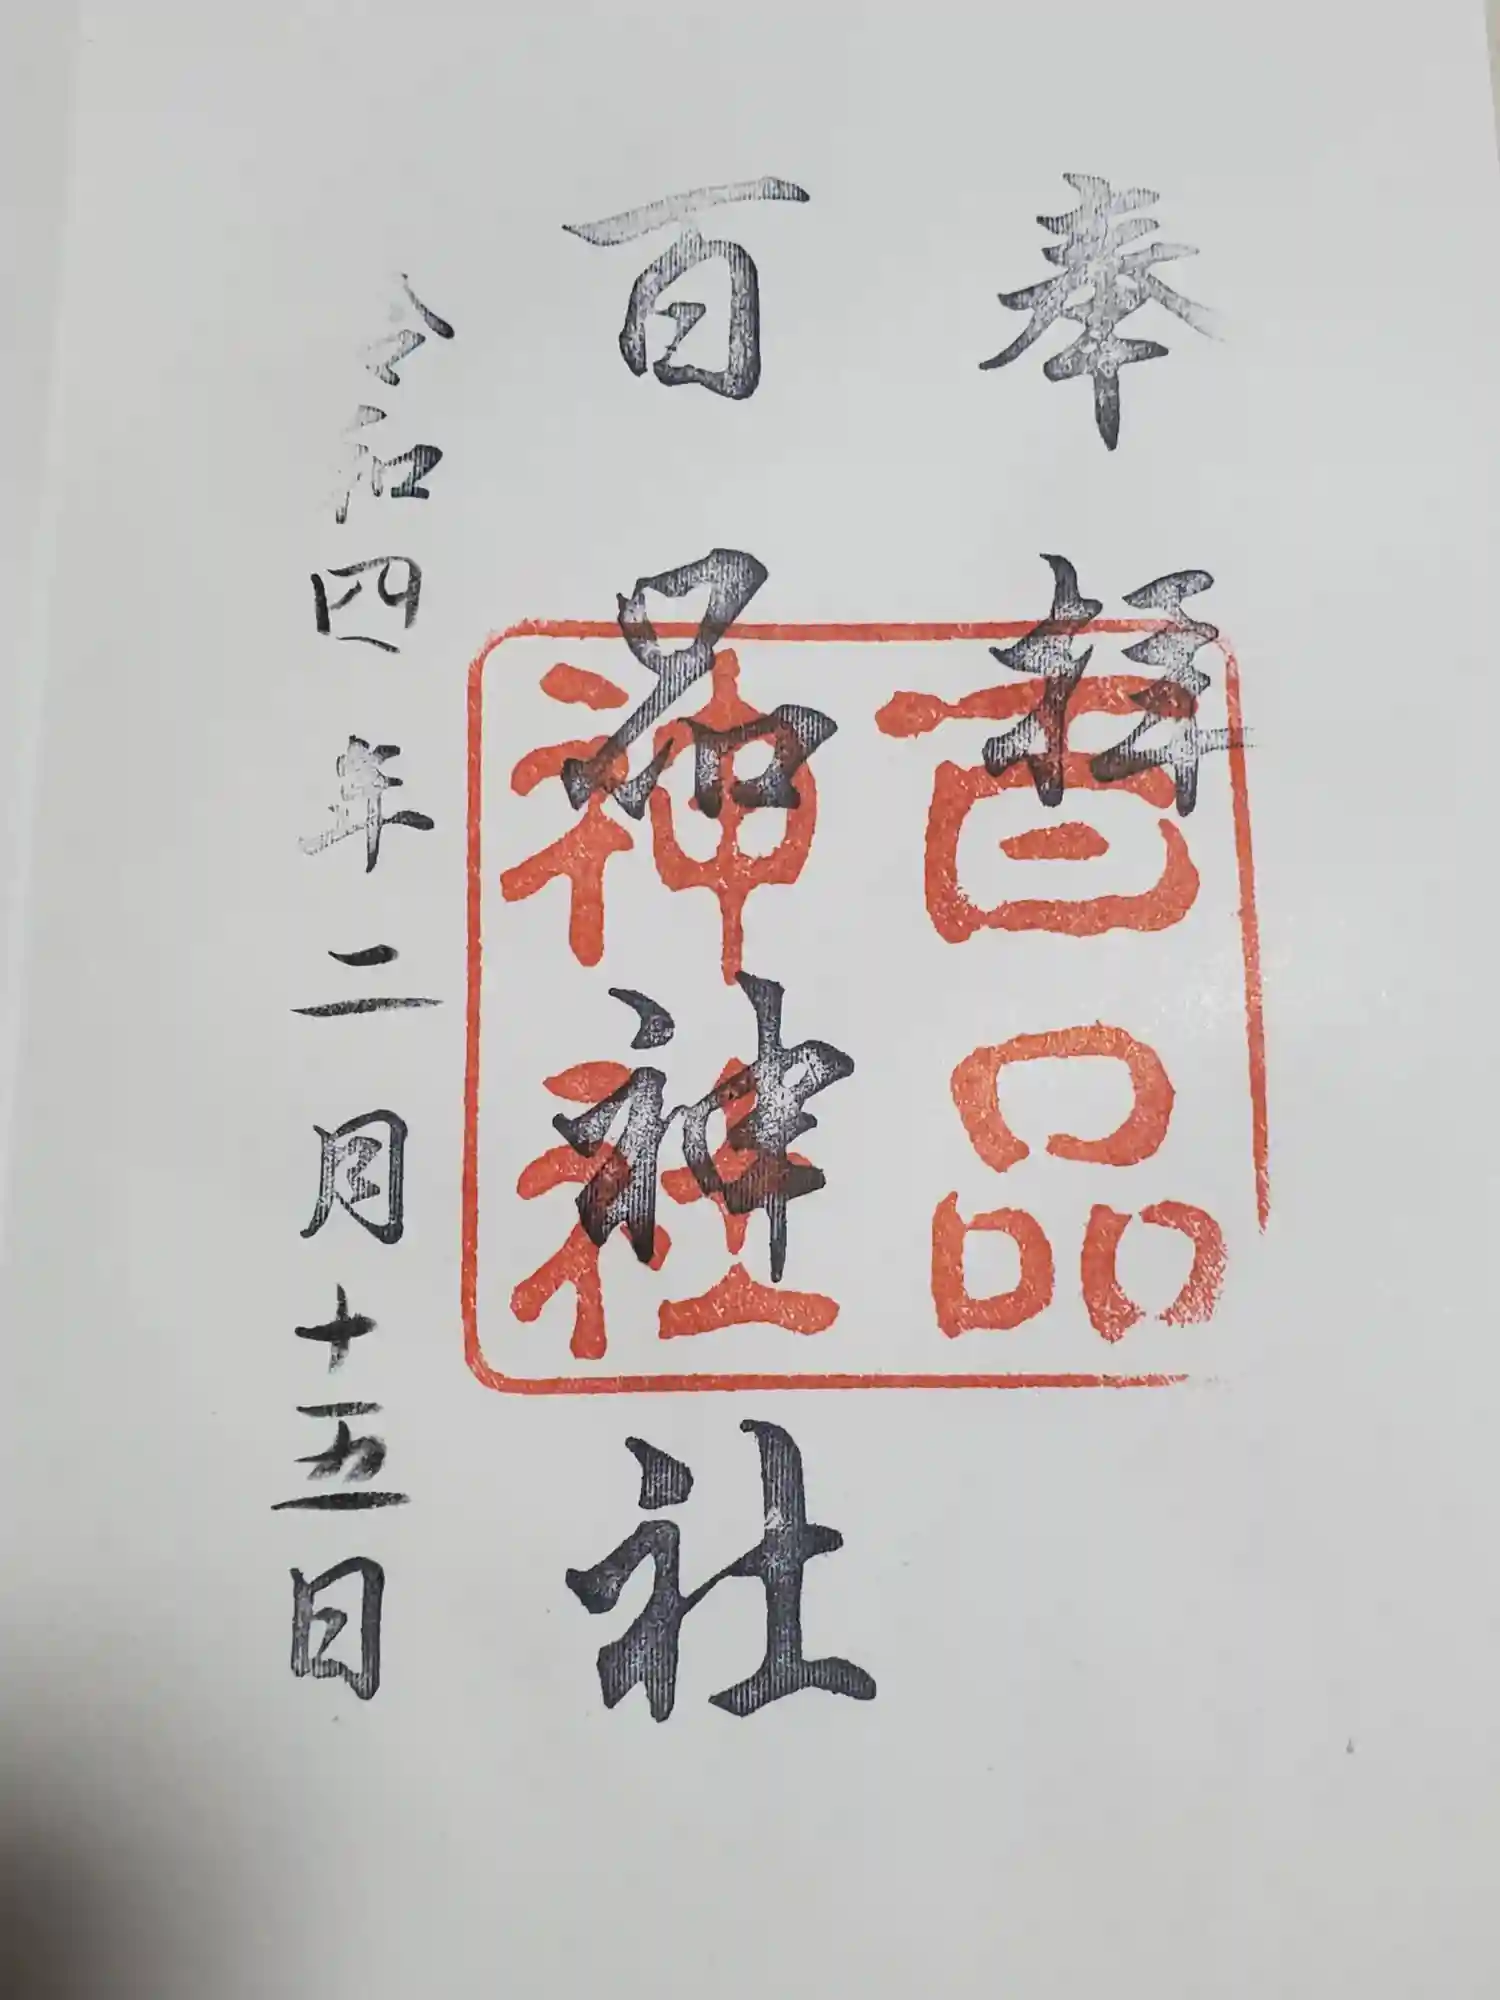 奉拝
百品神社
百品
神社
令和四年二月十五日